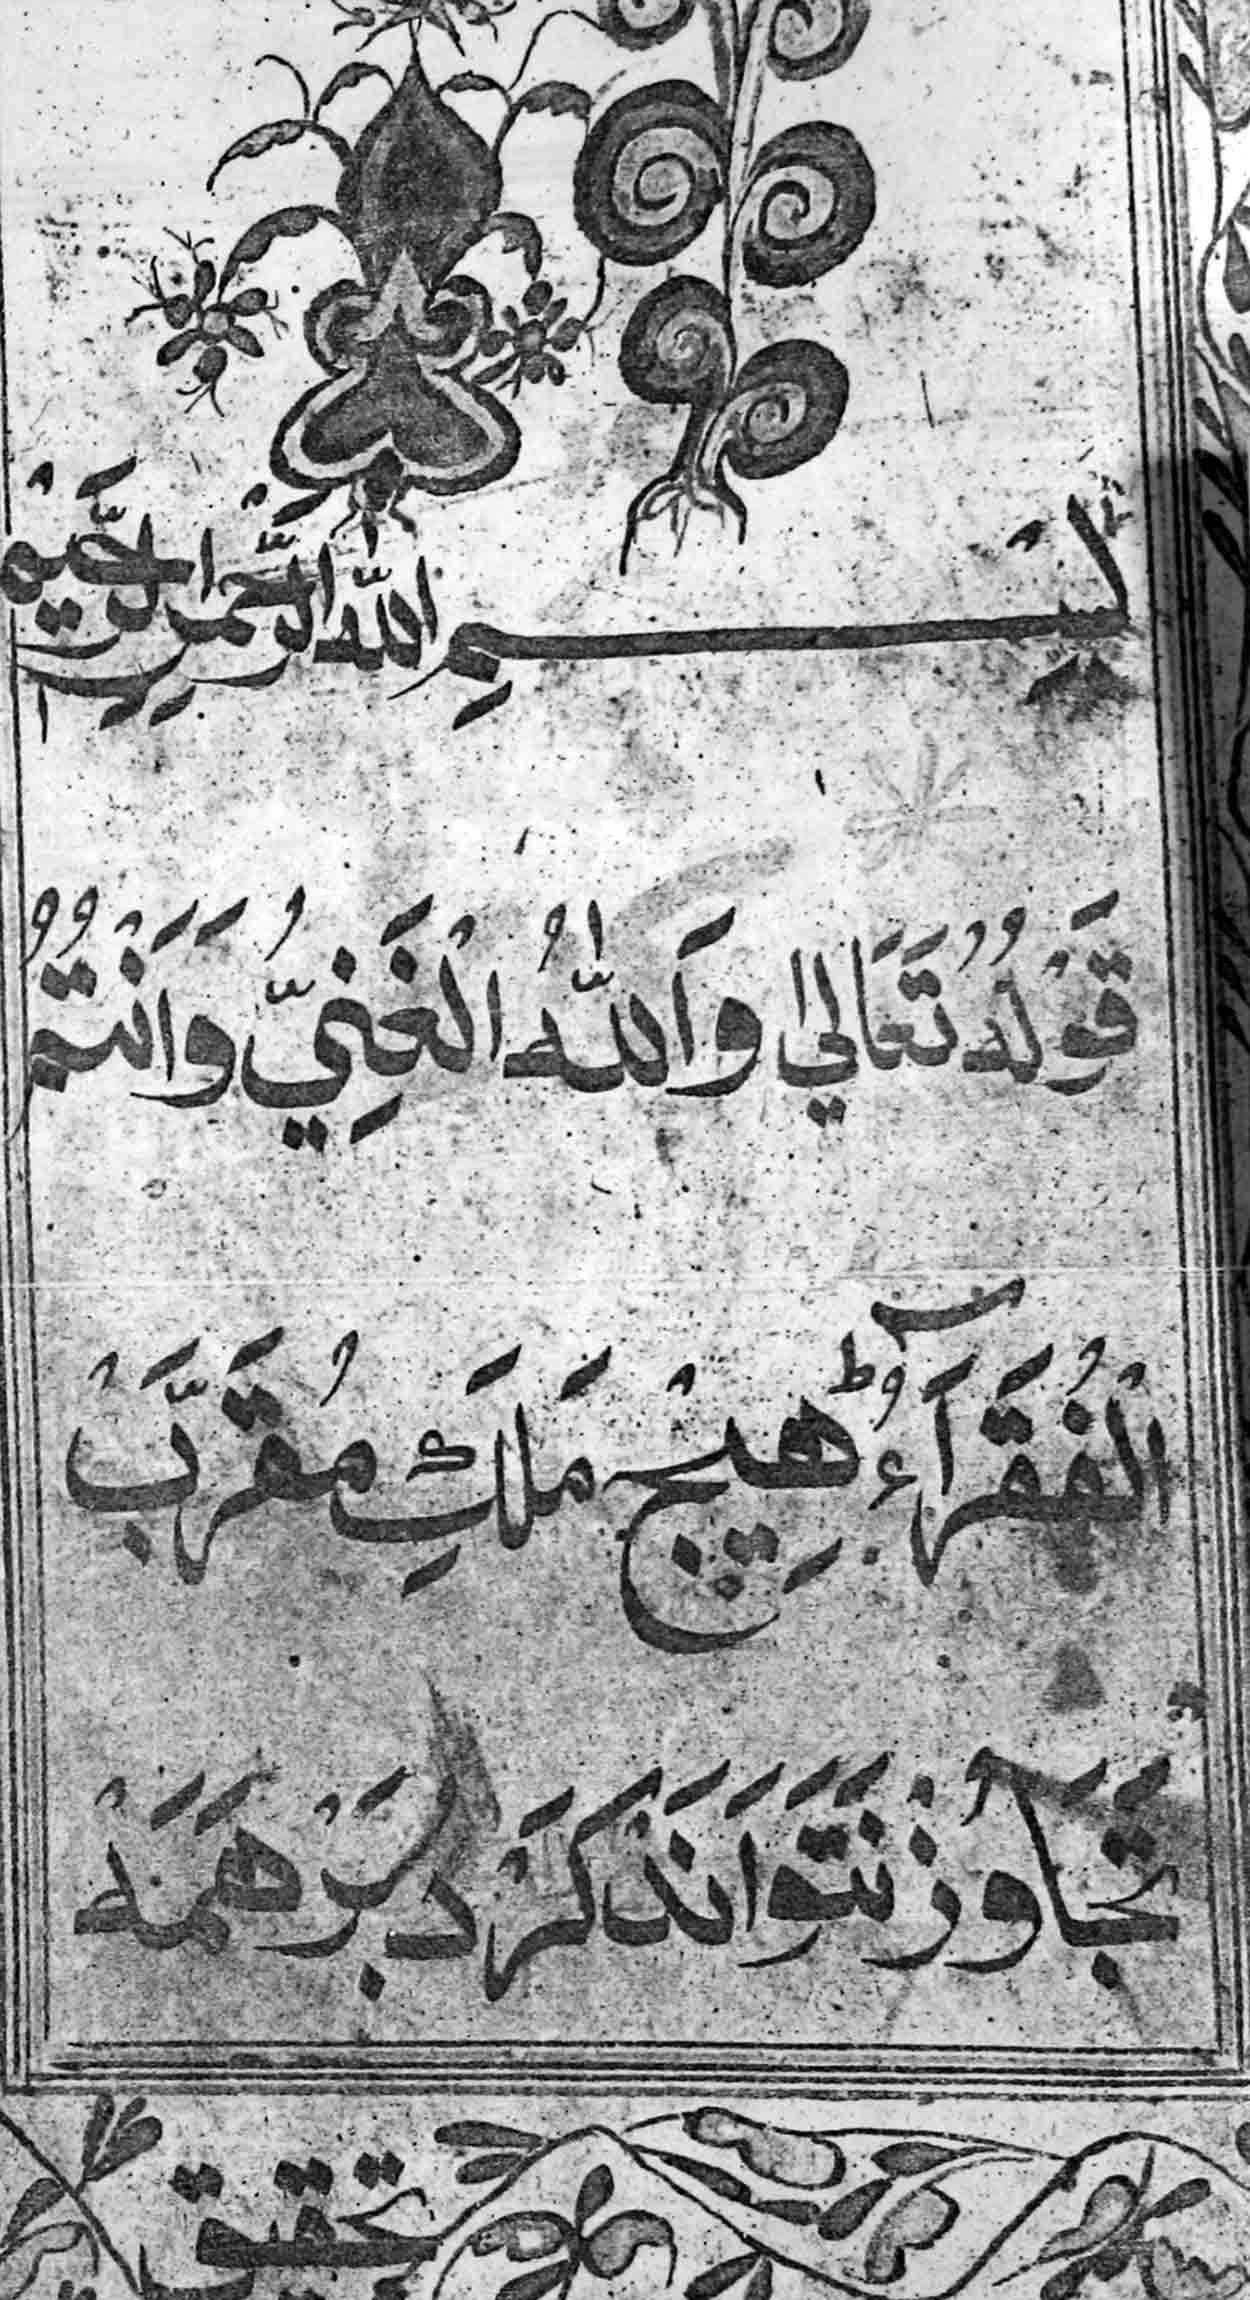 بِسْمِ اللّٰهِ الرَّحْمٰنِ الرَّحِيْمِ
قَوْلُهُ تَعَالٰي وَاَللّٰهُ الْغَنِيُّ وَاَنْتُمُ
الْفُقَرَآءُ ط هِيچْ مَلَكِ مُقَرَّبْ
تَجَاوُزْ نَتَوَانَدْ كَرْد بَرْ هَمَهْ
تحقيق